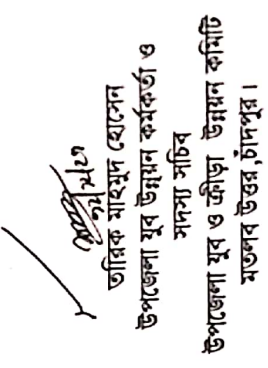 তারিক মাহমুদ হোসেন
উপজেলা যুব উন্নয়ন কর্মকর্তা ও
সদস্য সচিব
উপজেলা যুব ও ক্রীড়া উন্নয়ন কমিটি
মতলব উত্তর, চাঁদপুর।